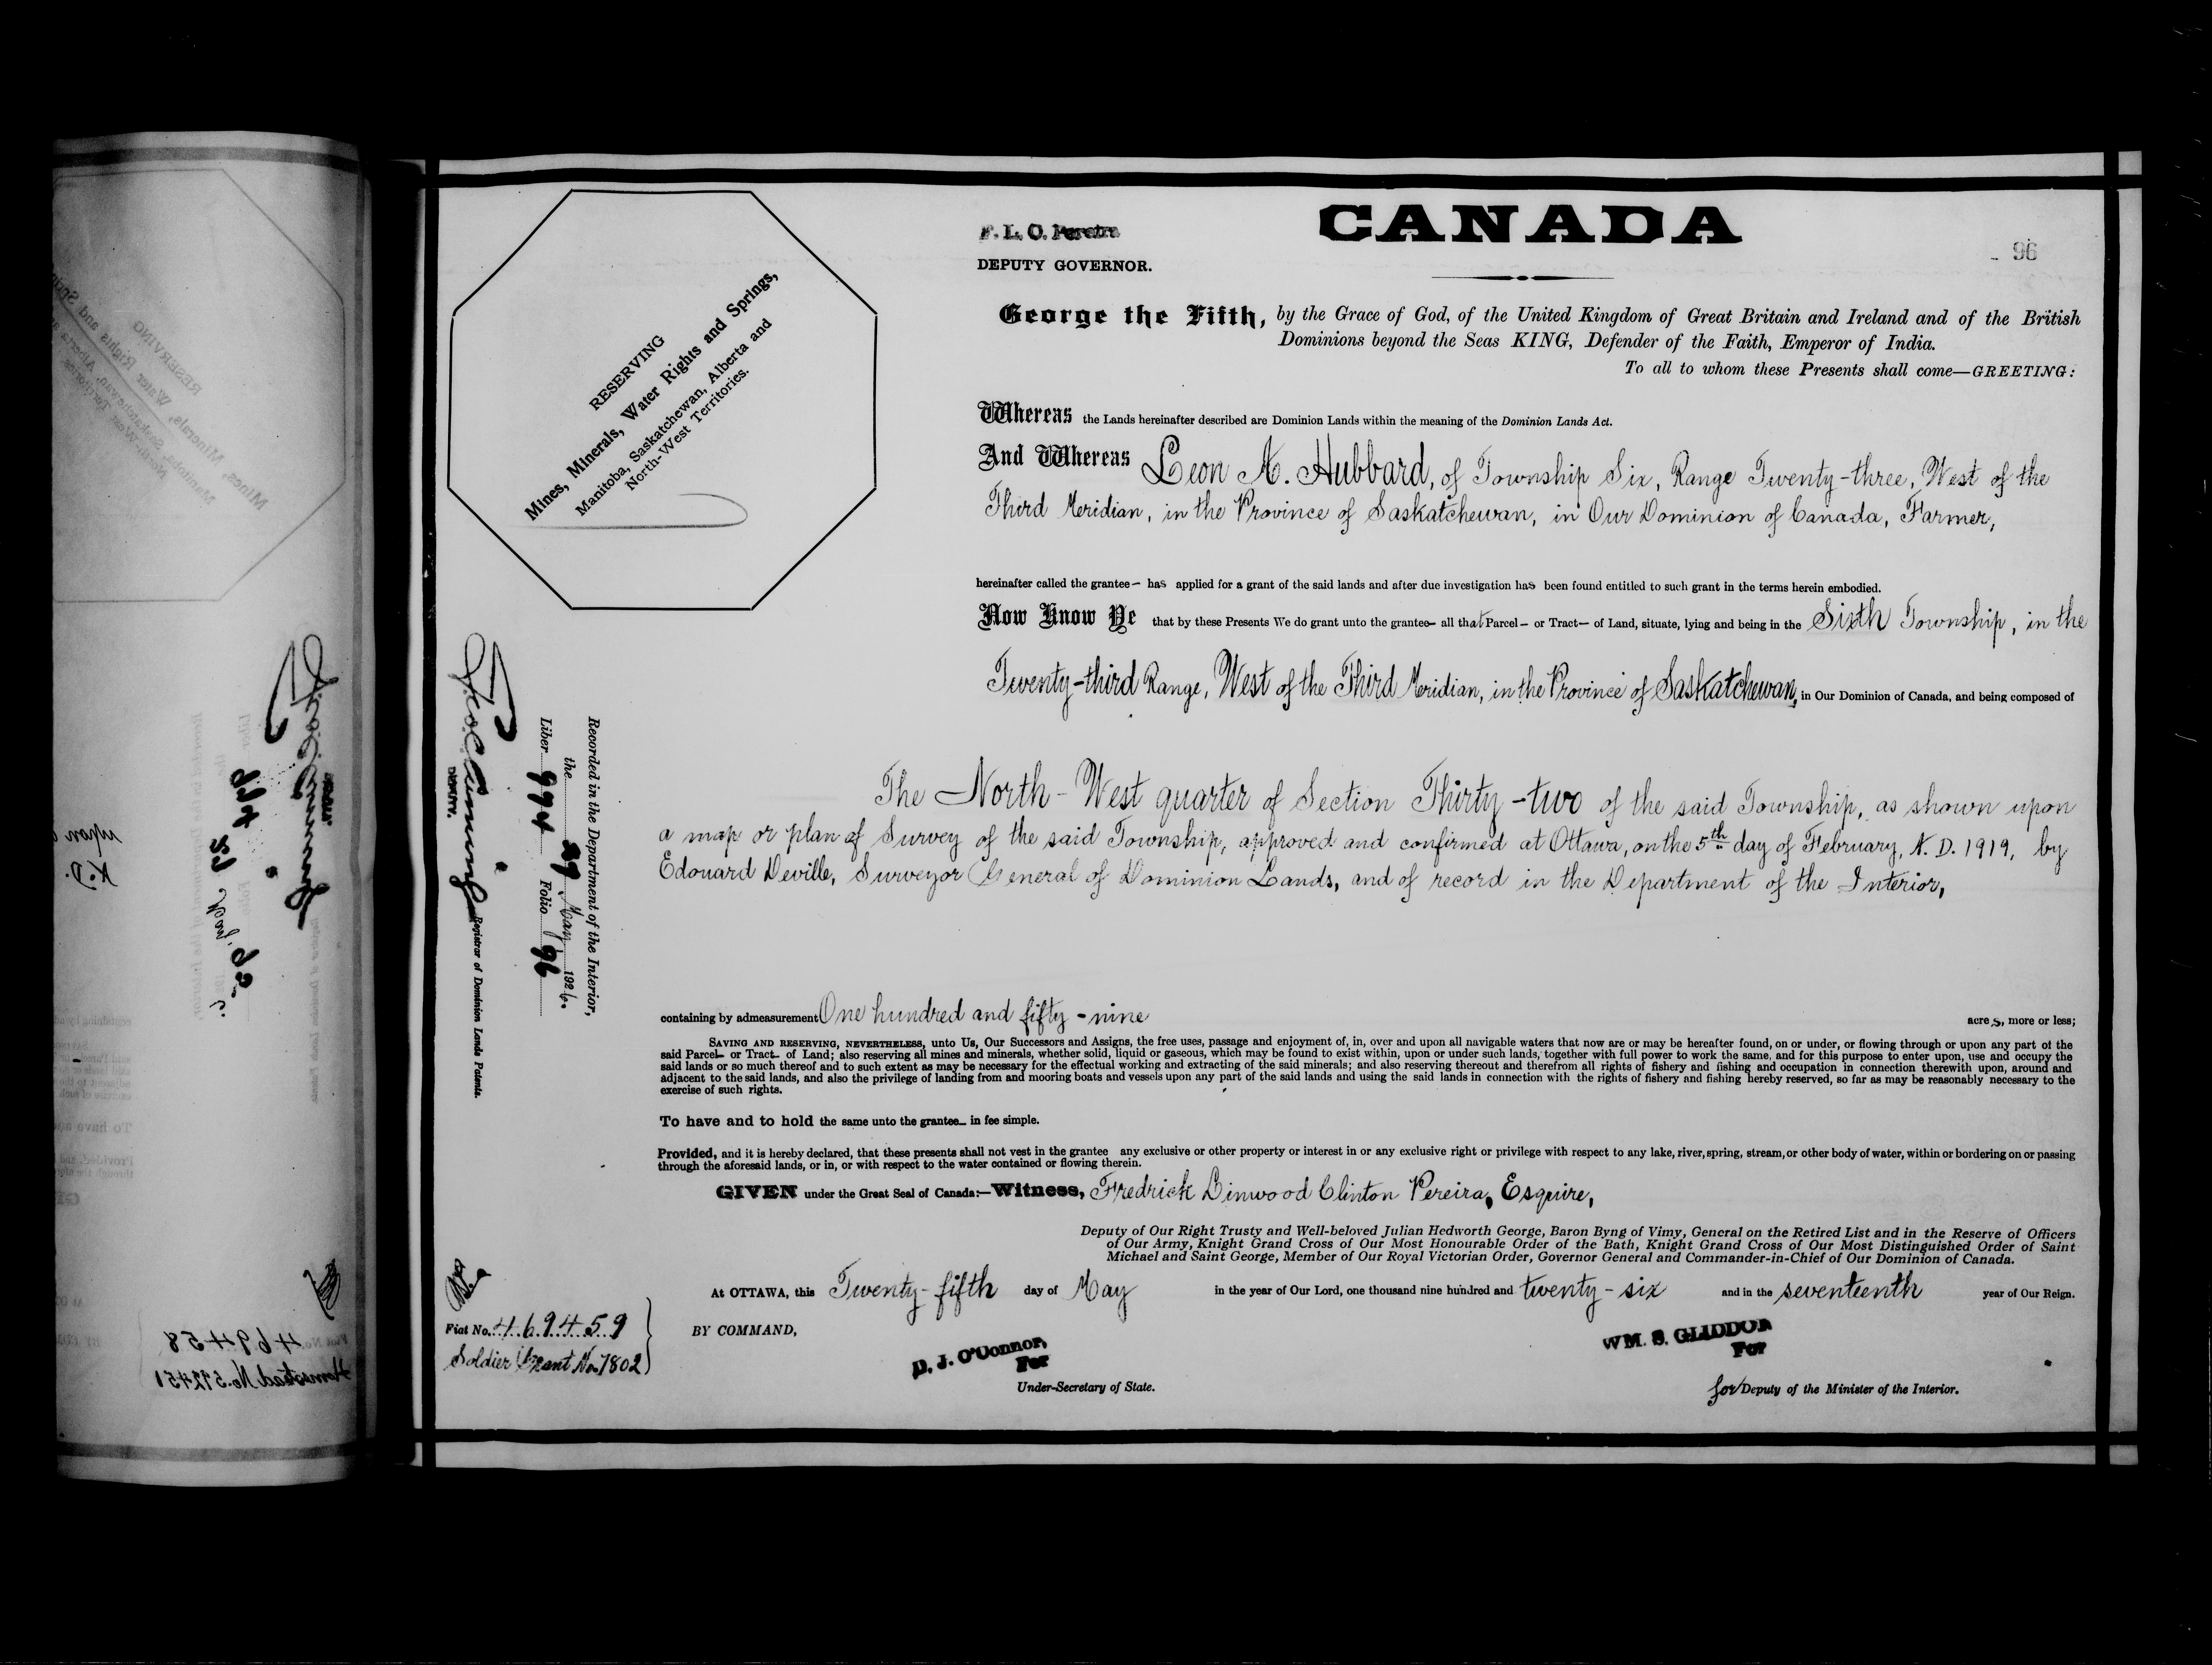 CANADA
F. L. C. Pereira
DEPUTY GOVERNOR.
96
RESERVING
Mines, Minerals, Water Rights and Springs,
Manitoba, Saskatchewan, Alberta and
North-West Territories.
George the Fifth, by the Grace of God, of the United Kingdom of Great Britain and Ireland and of the British
Dominions beyond the Seas KING, Defender of the Faith, Emperor of India.
To all to whom these Presents shall come—GREETING:
Whereas the Lands hereinafter described are Dominion Lands within the meaning of the Dominion Lands Act.
And Whereas Leon A. Hubbard, of Township Six, Range Twenty-three, West of the
Third Meridian, in the Province of Saskatchewan, in Our Dominion of Canada, Farmer,
hereinafter called the grantee— has applied for a grant of the said lands and after due investigation has been found entitled to such grant in the terms herein embodied.
Now Know Ye that by these Presents We do grant unto the grantee— all that Parcel— or Tract— of Land, situate, lying and being in the Sixth Township, in the
Twenty-third Range, West of the Third Meridian, in the Province of Saskatchewan, in Our Dominion of Canada, and being composed of
The North-West quarter of Section Thirty-two of the said Township, as shown upon
a map or plan of Survey of the said Township, approved and confirmed at Ottawa, on the 5th day of February, A. D. 1919, by
Edouard Deville, Surveyor General of Dominion Lands, and of record in the Department of the Interior,
Recorded in the Department of the Interior,
the 29 May 1926.
Liber 994 Folio 96
DEPUTY.
Registrar of Dominion Lands Patents.
containing by admeasurement One hundred and fifty-nine acres, more or less;
SAVING AND RESERVING, NEVERTHELESS, unto Us, Our Successors and Assigns, the free uses, passage and enjoyment of, in, over and upon all navigable waters that now are or may be hereafter found, on or under, or flowing through or upon any part of the
said Parcel— or Tract— of Land; also reserving all mines and minerals, whether solid, liquid or gaseous, which may be found to exist within, upon or under such lands, together with full power to work the same, and for this purpose to enter upon, use and occupy the
said lands or so much thereof and to such extent as may be necessary for the effectual working and extracting of the said minerals; and also reserving thereout and therefrom all rights of fishery and fishing and occupation in connection therewith upon, around and
adjacent to the said lands, and also the privilege of landing from and mooring boats and vessels upon any part of the said lands and using the said lands in connection with the rights of fishery and fishing hereby reserved, so far as may be reasonably necessary to the
exercise of such rights.
To have and to hold the same unto the grantee— in fee simple.
Provided, and it is hereby declared, that these presents shall not vest in the grantee any exclusive or other property or interest in or any exclusive right or privilege with respect to any lake, river, spring, stream, or other body of water, within or bordering on or passing
through the aforesaid lands, or in, or with respect to the water contained or flowing therein.
GIVEN under the Great Seal of Canada:—Witness, Fredrick Linwood Clinton Pereira, Esquire,
Deputy of Our Right Trusty and Well-beloved Julian Hedworth George, Baron Byng of Vimy, General on the Retired List and in the Reserve of Officers
of Our Army, Knight Grand Cross of Our Most Honourable Order of the Bath, Knight Grand Cross of Our Most Distinguished Order of Saint
Michael and Saint George, Member of Our Royal Victorian Order, Governor General and Commander-in-Chief of Our Dominion of Canada.
At OTTAWA, this Twenty-fifth day of May in the year of Our Lord, one thousand nine hundred and twenty-six and in the seventeenth year of Our Reign.
Fiat No. 469459
Soldier Grant No. 7802
BY COMMAND,
D. J. O'Connor,
For
Under-Secretary of State.
WM. S. GLIDDON
For
for Deputy of the Minister of the Interior.